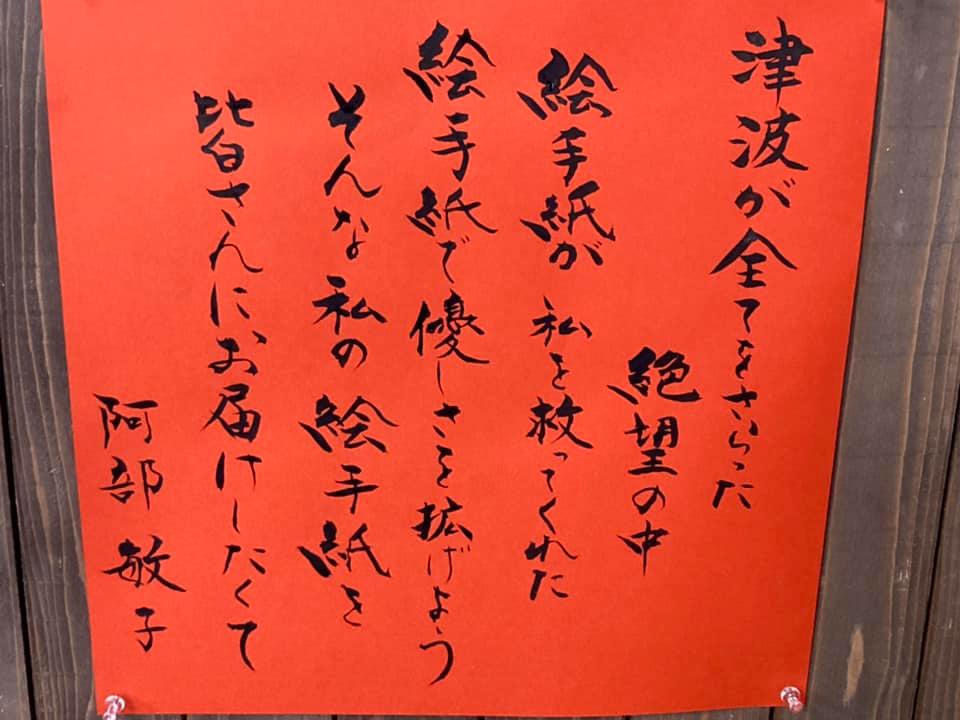 津波が全てをさらった
絶望の中
絵手紙が 私を救ってくれた
絵手紙で優しさを拡げよう
そんな私の絵手紙を
皆さんにお届けしたくて
阿部 敏子